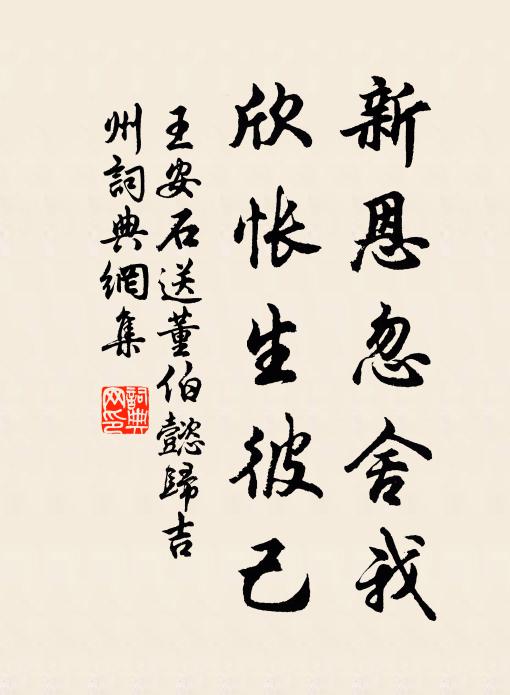 新恩忽舍我
欣怅生彼己
王安石送董伯懿歸吉
州詞典網集
詞典網印